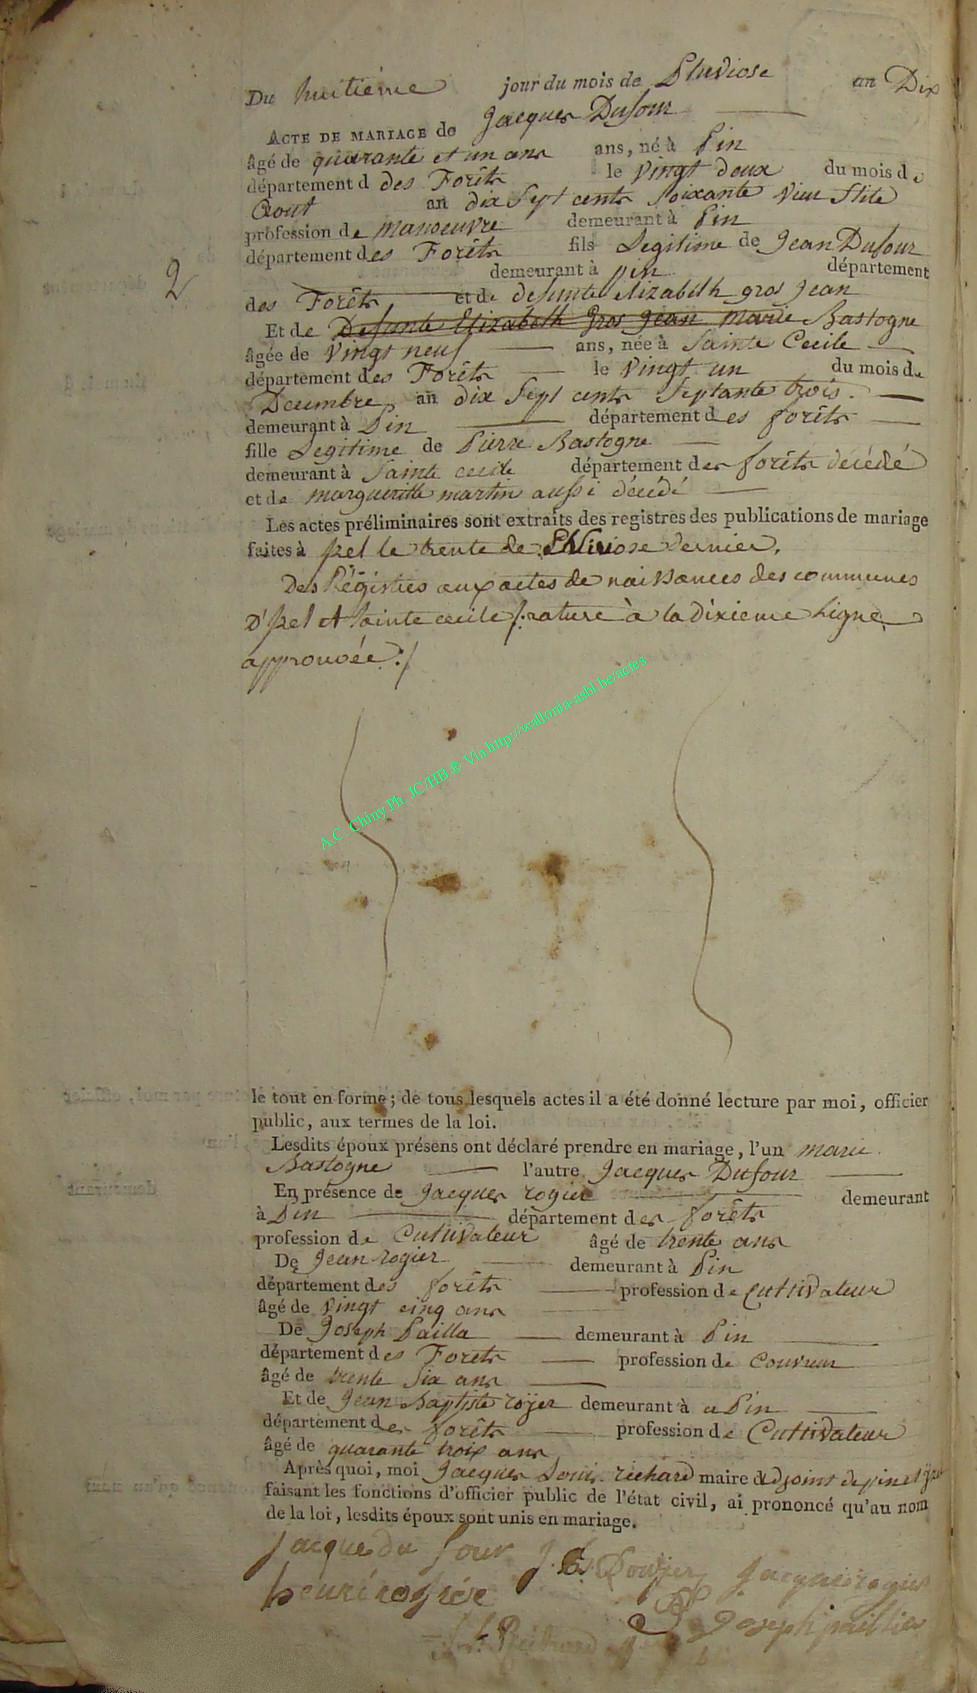 Du huitieme jour du mois de Pluviose an Dix
ACTE DE MARIAGE de Jacques Dufour
âgé de quarante et un ans ans, né à Pin
département d des Forêts le vingt deux du mois de
Aout an dix Sept cents Soixante vieu Stile
profession de manoeuvre demeurant à Pin
département des Forêts fils Legitime de Jean Dufour
demeurant à pin département
des Forêts et de defunte elizabeth gros jean
2
Et de Defunte Elizabeth Gros Jean marie Bastogne
âgée de vingt neuf ans, née à Sainte Cecile
département des Forêts le vingt un du mois de
Decembre an dix Sept cents Septante trois.
demeurant à Pin département des forêts
fille Legitime de Pierre Bastogne
demeurant à Sainte cecile département des forêts décédé
et de marguerite martin aussi décédé
Les actes préliminaires sont extraits des registres des publications de mariage
faites à Izel le trente de dernier.
Des Régistres aux actes de naissances des communes
D'Izel et Sainte cecile /. rature à la dixieme Ligne
approuvée ./
A.C. Chiny Ph. JC/HB © Via http://wallonia-asbl.be/actes
le tout en forme; de tous lesquels actes il a été donné lecture par moi, officier
public, aux termes de la loi.
Lesdits époux présens ont déclaré prendre en mariage, l'un marie
Bastogne l'autre Jacques Dufour
En présence de Jacques rogier demeurant
à Pin département des forêts
profession de Cultivateur âgé de trente ans
De Jean rogier demeurant à Pin
département des forêts profession de Cultivateur
âgé de vingt cinq ans
De Joseph Pailla demeurant à Pin
département des Forets profession de couvreur
âgé de trente Six ans
Et de Jean Baptiste royer demeurant à a Pin
département des forêts profession de Cultivateur
âgé de quarante troix ans
Après quoi, moi Jacques Louis richard maire adjoint de pin et Izel
faisant les fonctions d'officier public de l'état civil, ai prononcé qu'au nom
de la loi, lesdits époux sont unis en mariage.
Jacque du four J. B. Jacque rogier
Joseph paillier